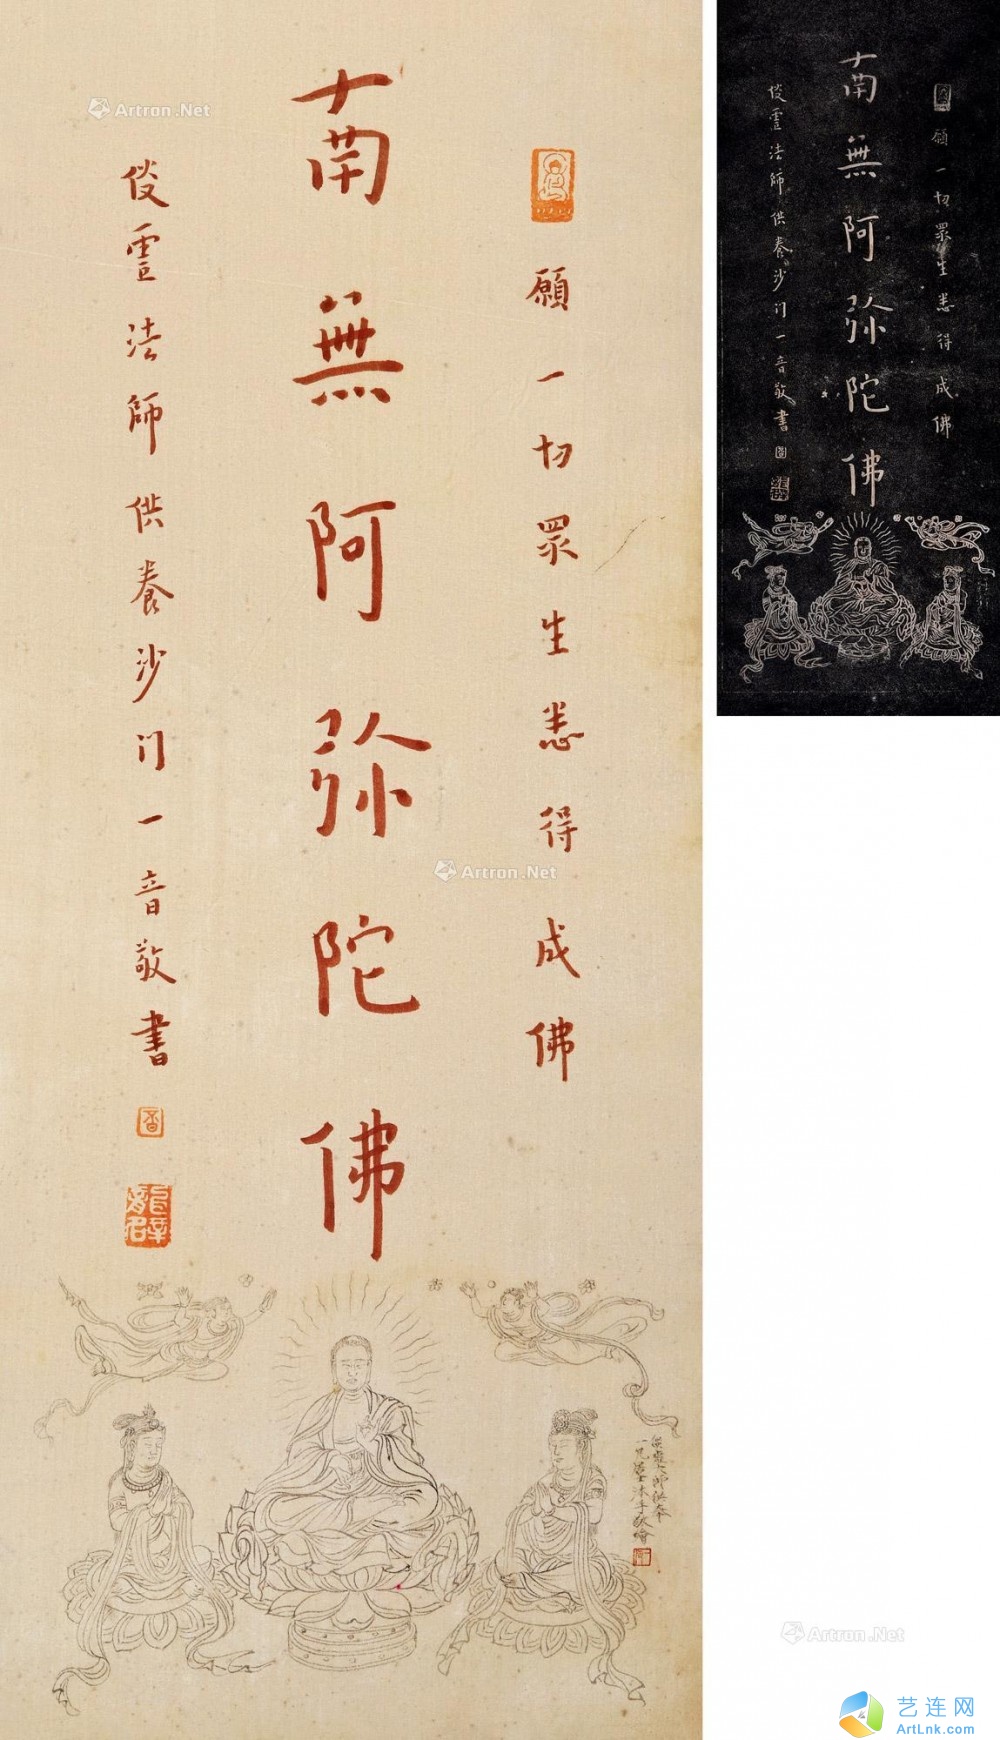 願一切眾生悉得成佛
南無阿弥陀佛
倓虛法師供養沙门一音敬書
音
願一切眾生悉得成佛
南無阿弥陀佛
倓虛法師供養沙门一音敬書
Artron.Net
Artron.Net
Artron.Net
艺连网
ArtLnk.com